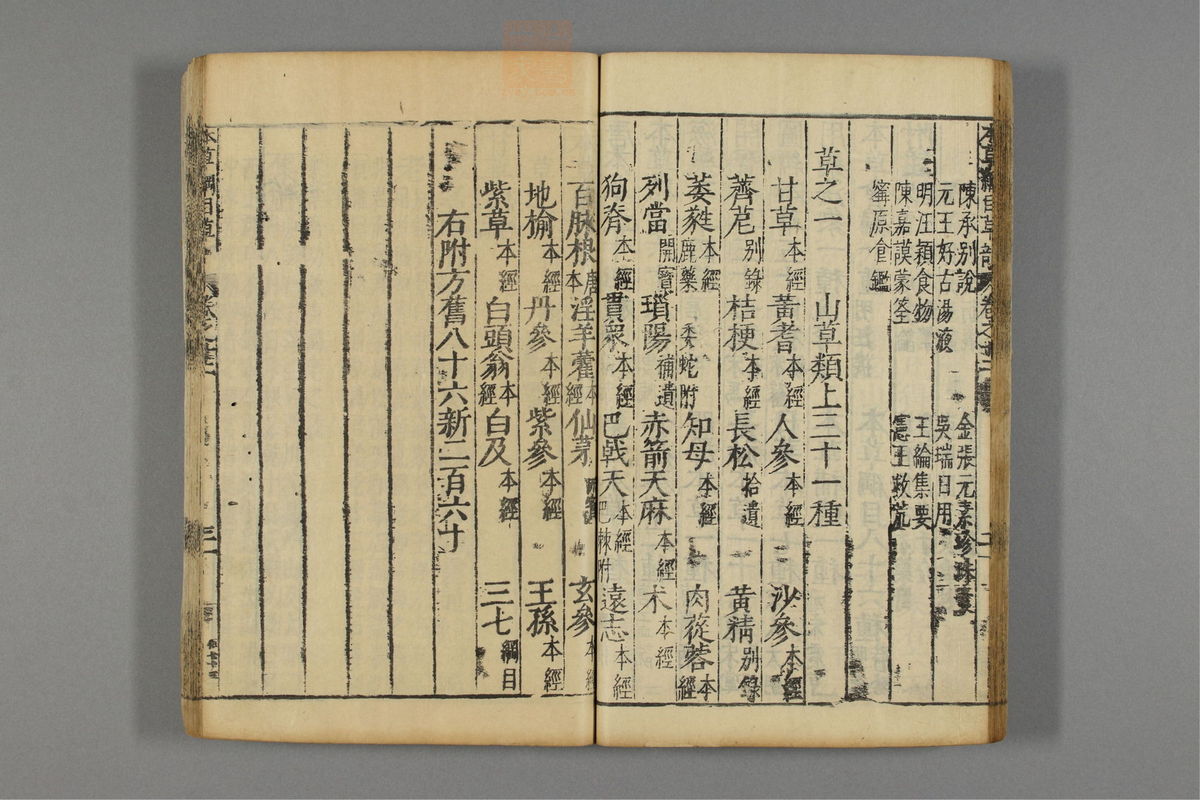 陳承別說　金張元素珍珠囊
元王好古湯液　吳瑞日用
明汪穎食物　王綸集要
陳嘉謨蒙筌　憲王救荒
寗原食鑑
草之一　山草類上三十一種
甘草本經　黃耆本經　人參本經　沙參本經
薺苨別錄　桔梗本經　長松拾遺　黃精別錄
萎蕤本經　鹿藥　委蛇附　知母本經　肉蓯蓉本經
列當開寶　瑣陽補遺　赤箭天麻本經　术本經
狗脊本經　貫衆本經　巴戟天本經　巴棘附　遠志本經
百脉根唐本　淫羊藿本經　仙茅開寶　玄參本經
地榆本經　丹參本經　紫參本經　王孫本經
紫草本經　白頭翁本經　白及本經　三七綱目
右附方舊八十六新二百六十
本草綱目草